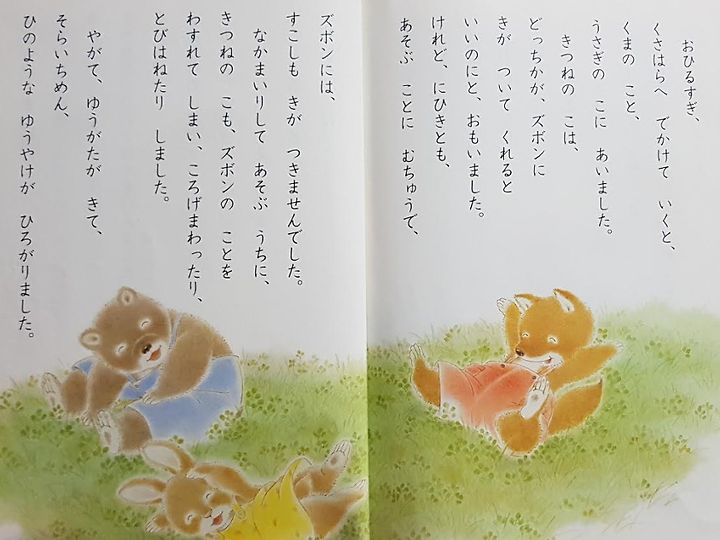 おひるすぎ、
くさはらへ　でかけて　いくと、
くまの　こと、
うさぎの　こに　あいました。
きつねの　こは、
どっちかが、ズボンに
きが　ついて　くれると
いいのにと、おもいました。
けれど、にひきとも、
あそぶ　ことに　むちゅうで、
ズボンには、
すこしも　きが　つきませんでした。
なかまいりして　あそぶ　うちに、
きつねの　こも、ズボンの　ことを
わすれて　しまい、ころげまわったり、
とびはねたり　しました。
やがて、ゆうがたが　きて、
そらいちめん、
ひのような　ゆうやけが　ひろがりました。